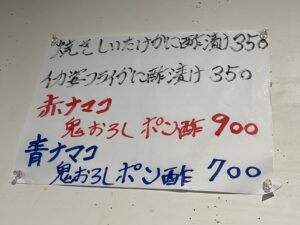 焼きしいたけかに酢漬け 350
イカ姿フライかに酢漬け 350
赤ナマコ
鬼おろし ポン酢 900
青ナマコ
鬼おろし ポン酢 700